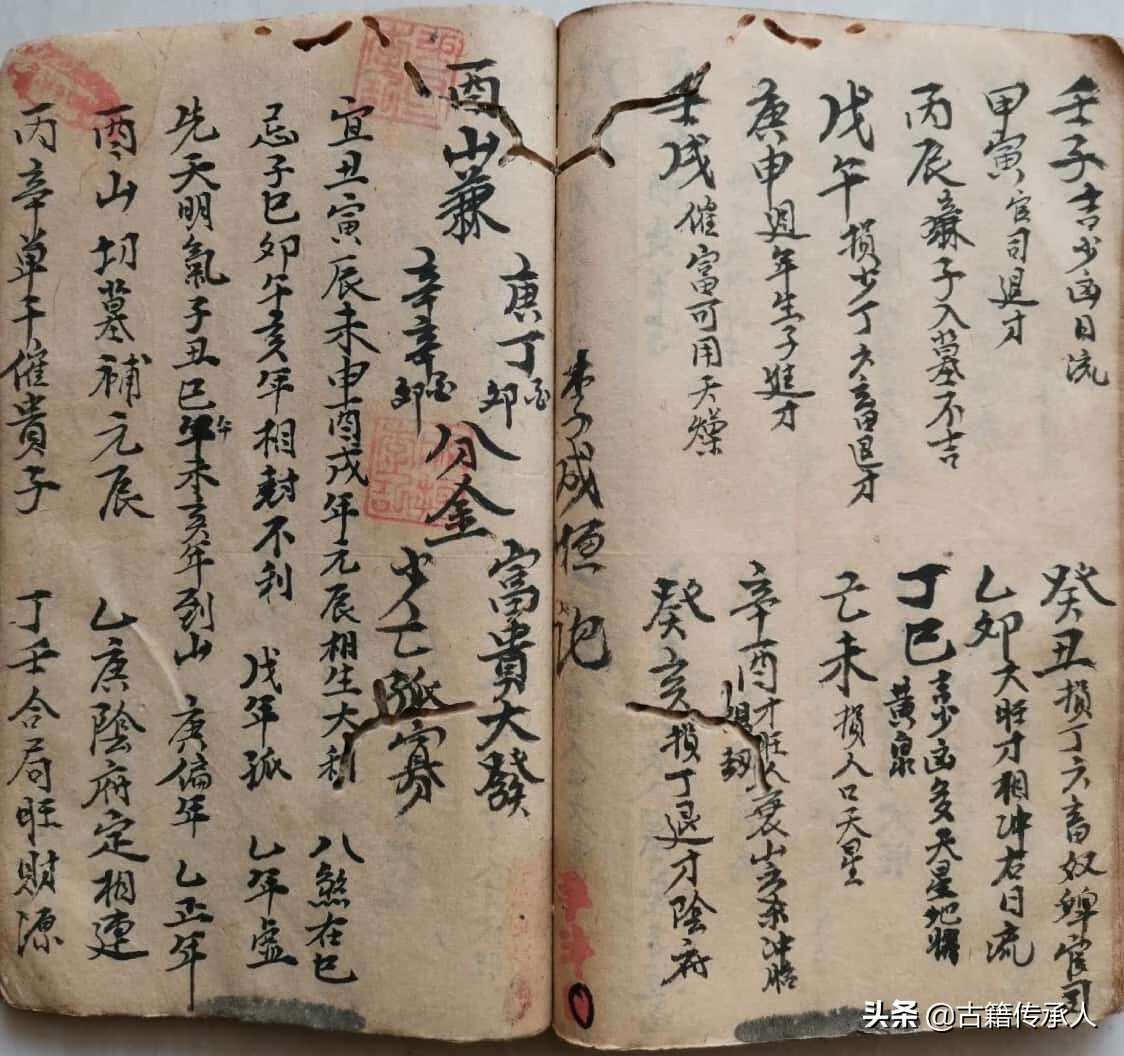 壬子吉少凶日流
癸丑損丁六畜奴婢官司
甲寅官司退才
乙卯大旺才相冲右日流
丙辰麻子入墓不吉
丁巳吉少凶多天星地曜
黄泉
戊午損少丁六畜退才
己未損人口天星
庚申週年生子進才
辛酉才旺
壬戌催富可用天燥
癸亥損丁退才陰府
李子成恒记
酉山兼
庚丁酉卯
辛辛酉卯
分金
富貴大發
少亡孤寡
宜丑寅辰未申酉戌年元辰相生大利 八煞在巳
忌子巳卯午亥年相尅不利 戊年孤 乙年虚
先天明氣子丑巳午年未亥年到山 庚偏年 乙正年
酉山切墓補元辰 乙庚陰府定相連
丙辛單干催貴子 丁壬合局旺財源
头条 @古籍传承人